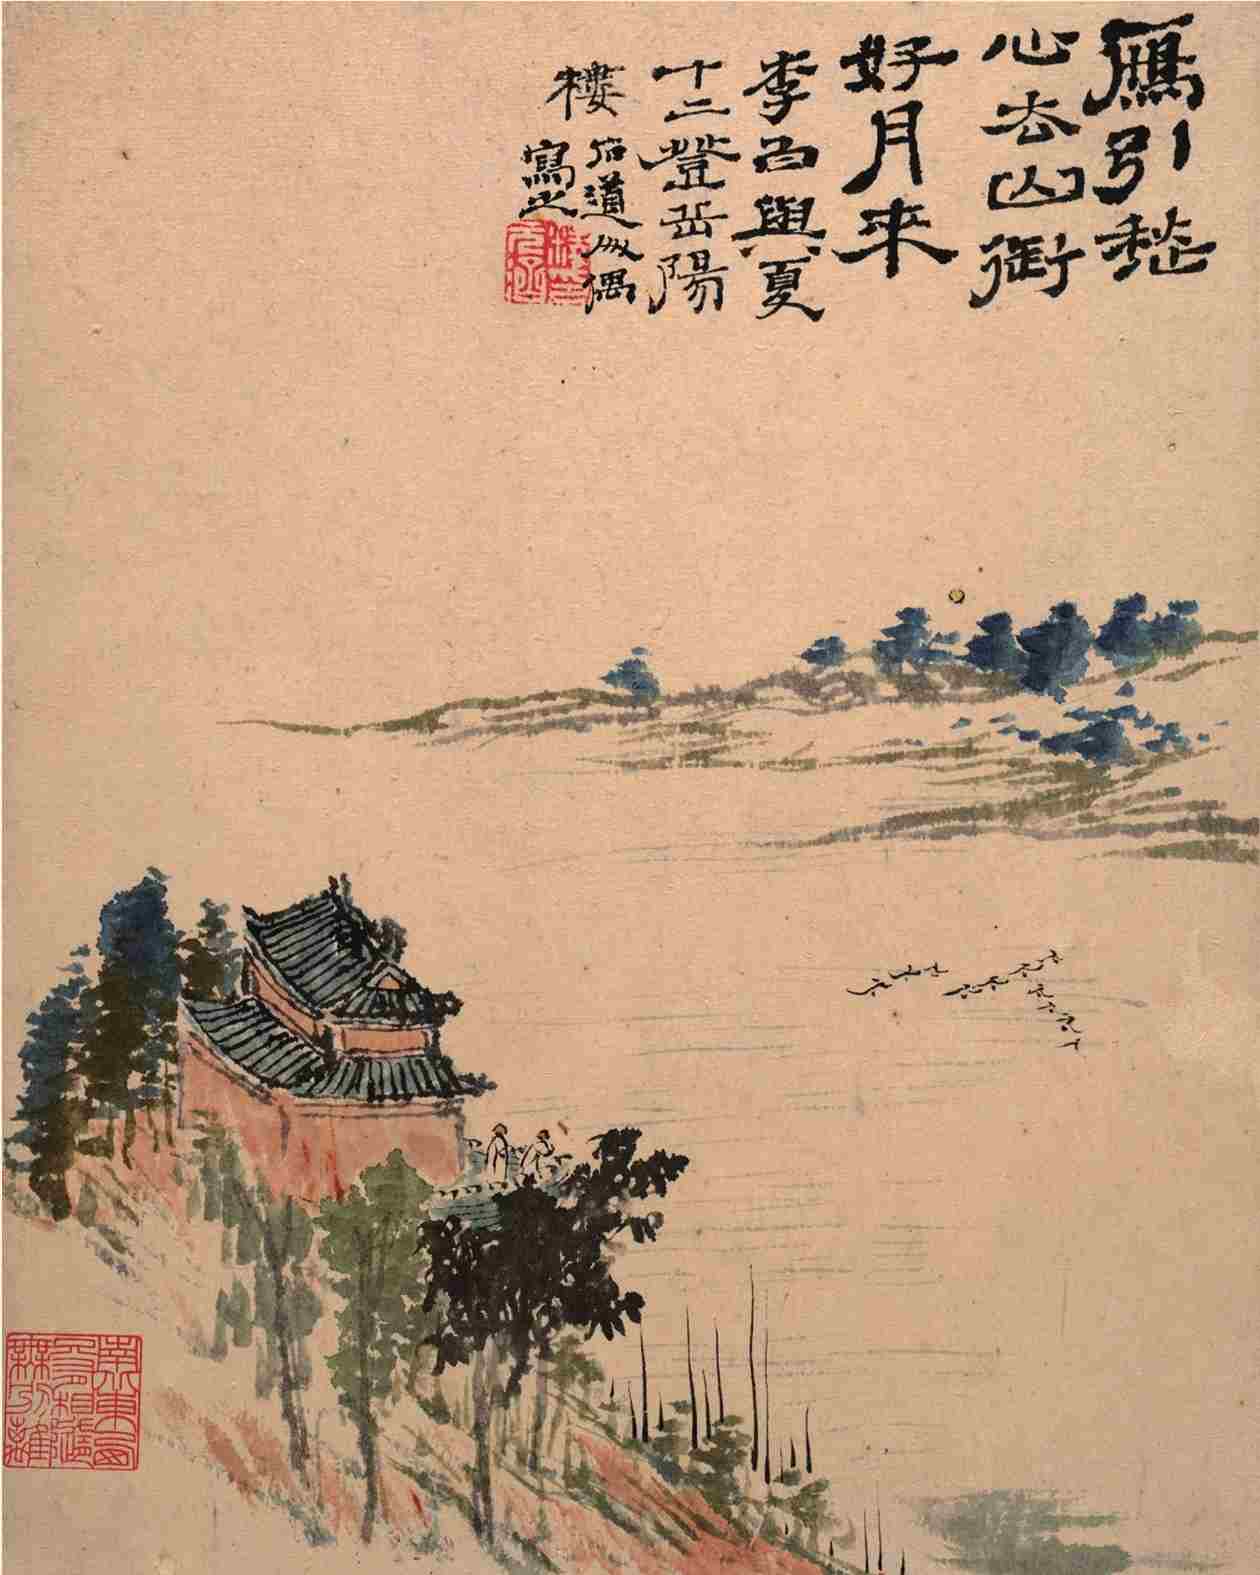 鴈引愁
心去山銜
好月來
李白與夏
十二登岳陽
樓
石道人偶
寫之